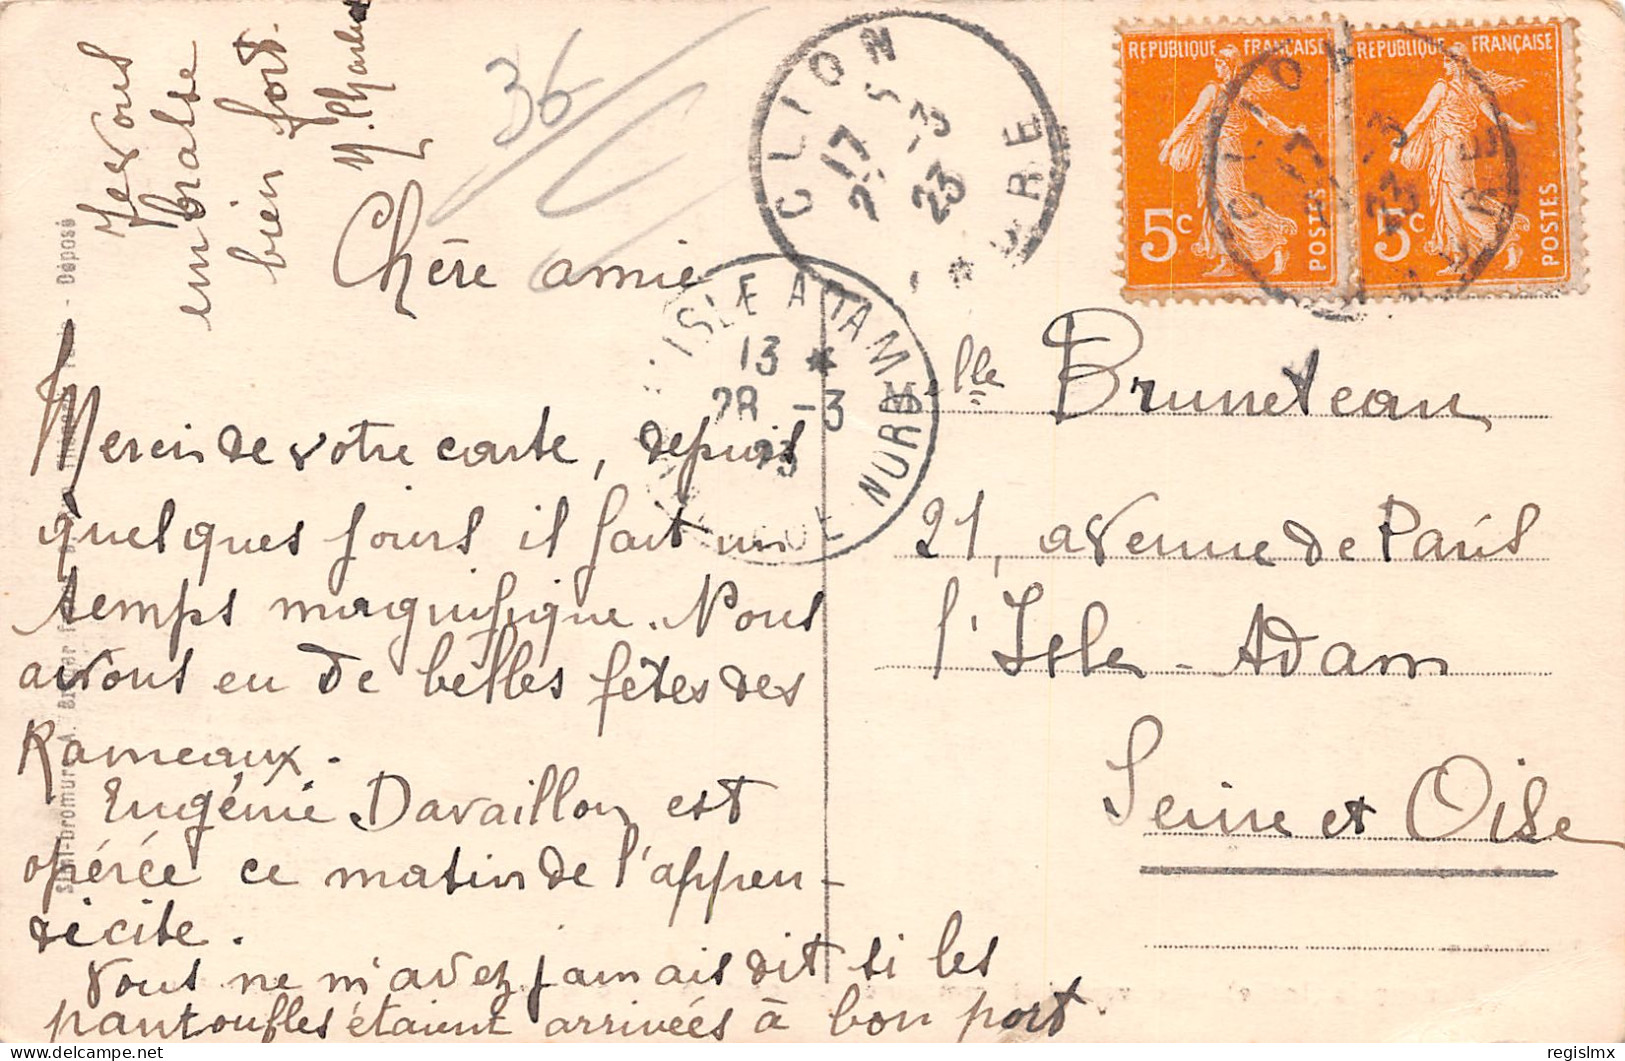 Chère amie
Merci de votre carte, depuis
quelques jours il fait un
temps magnifique. Nous
avons eu de belles fêtes des
Rameaux.
Eugénie Davaillon est
opérée ce matin de l'appen-
dicite.
Vous ne m'avez jamais dit si les
pantoufles étaient arrivées à bon port
Je vous
embrasse
bien fort.
M. Charles
36
CLION
17
-3
23
INDRE
L'ISLE ADAM
13 *
28 -3
23
RÉPUBLIQUE FRANÇAISE
5c
POSTES
RÉPUBLIQUE FRANÇAISE
5c
POSTES
CLION
17
-3
23
INDRE
Mlle Bruneteau
21, avenue de Paris
l'Isle-Adam
Seine et Oise
Simi-bromure A. Breger
- Déposé
regislmx